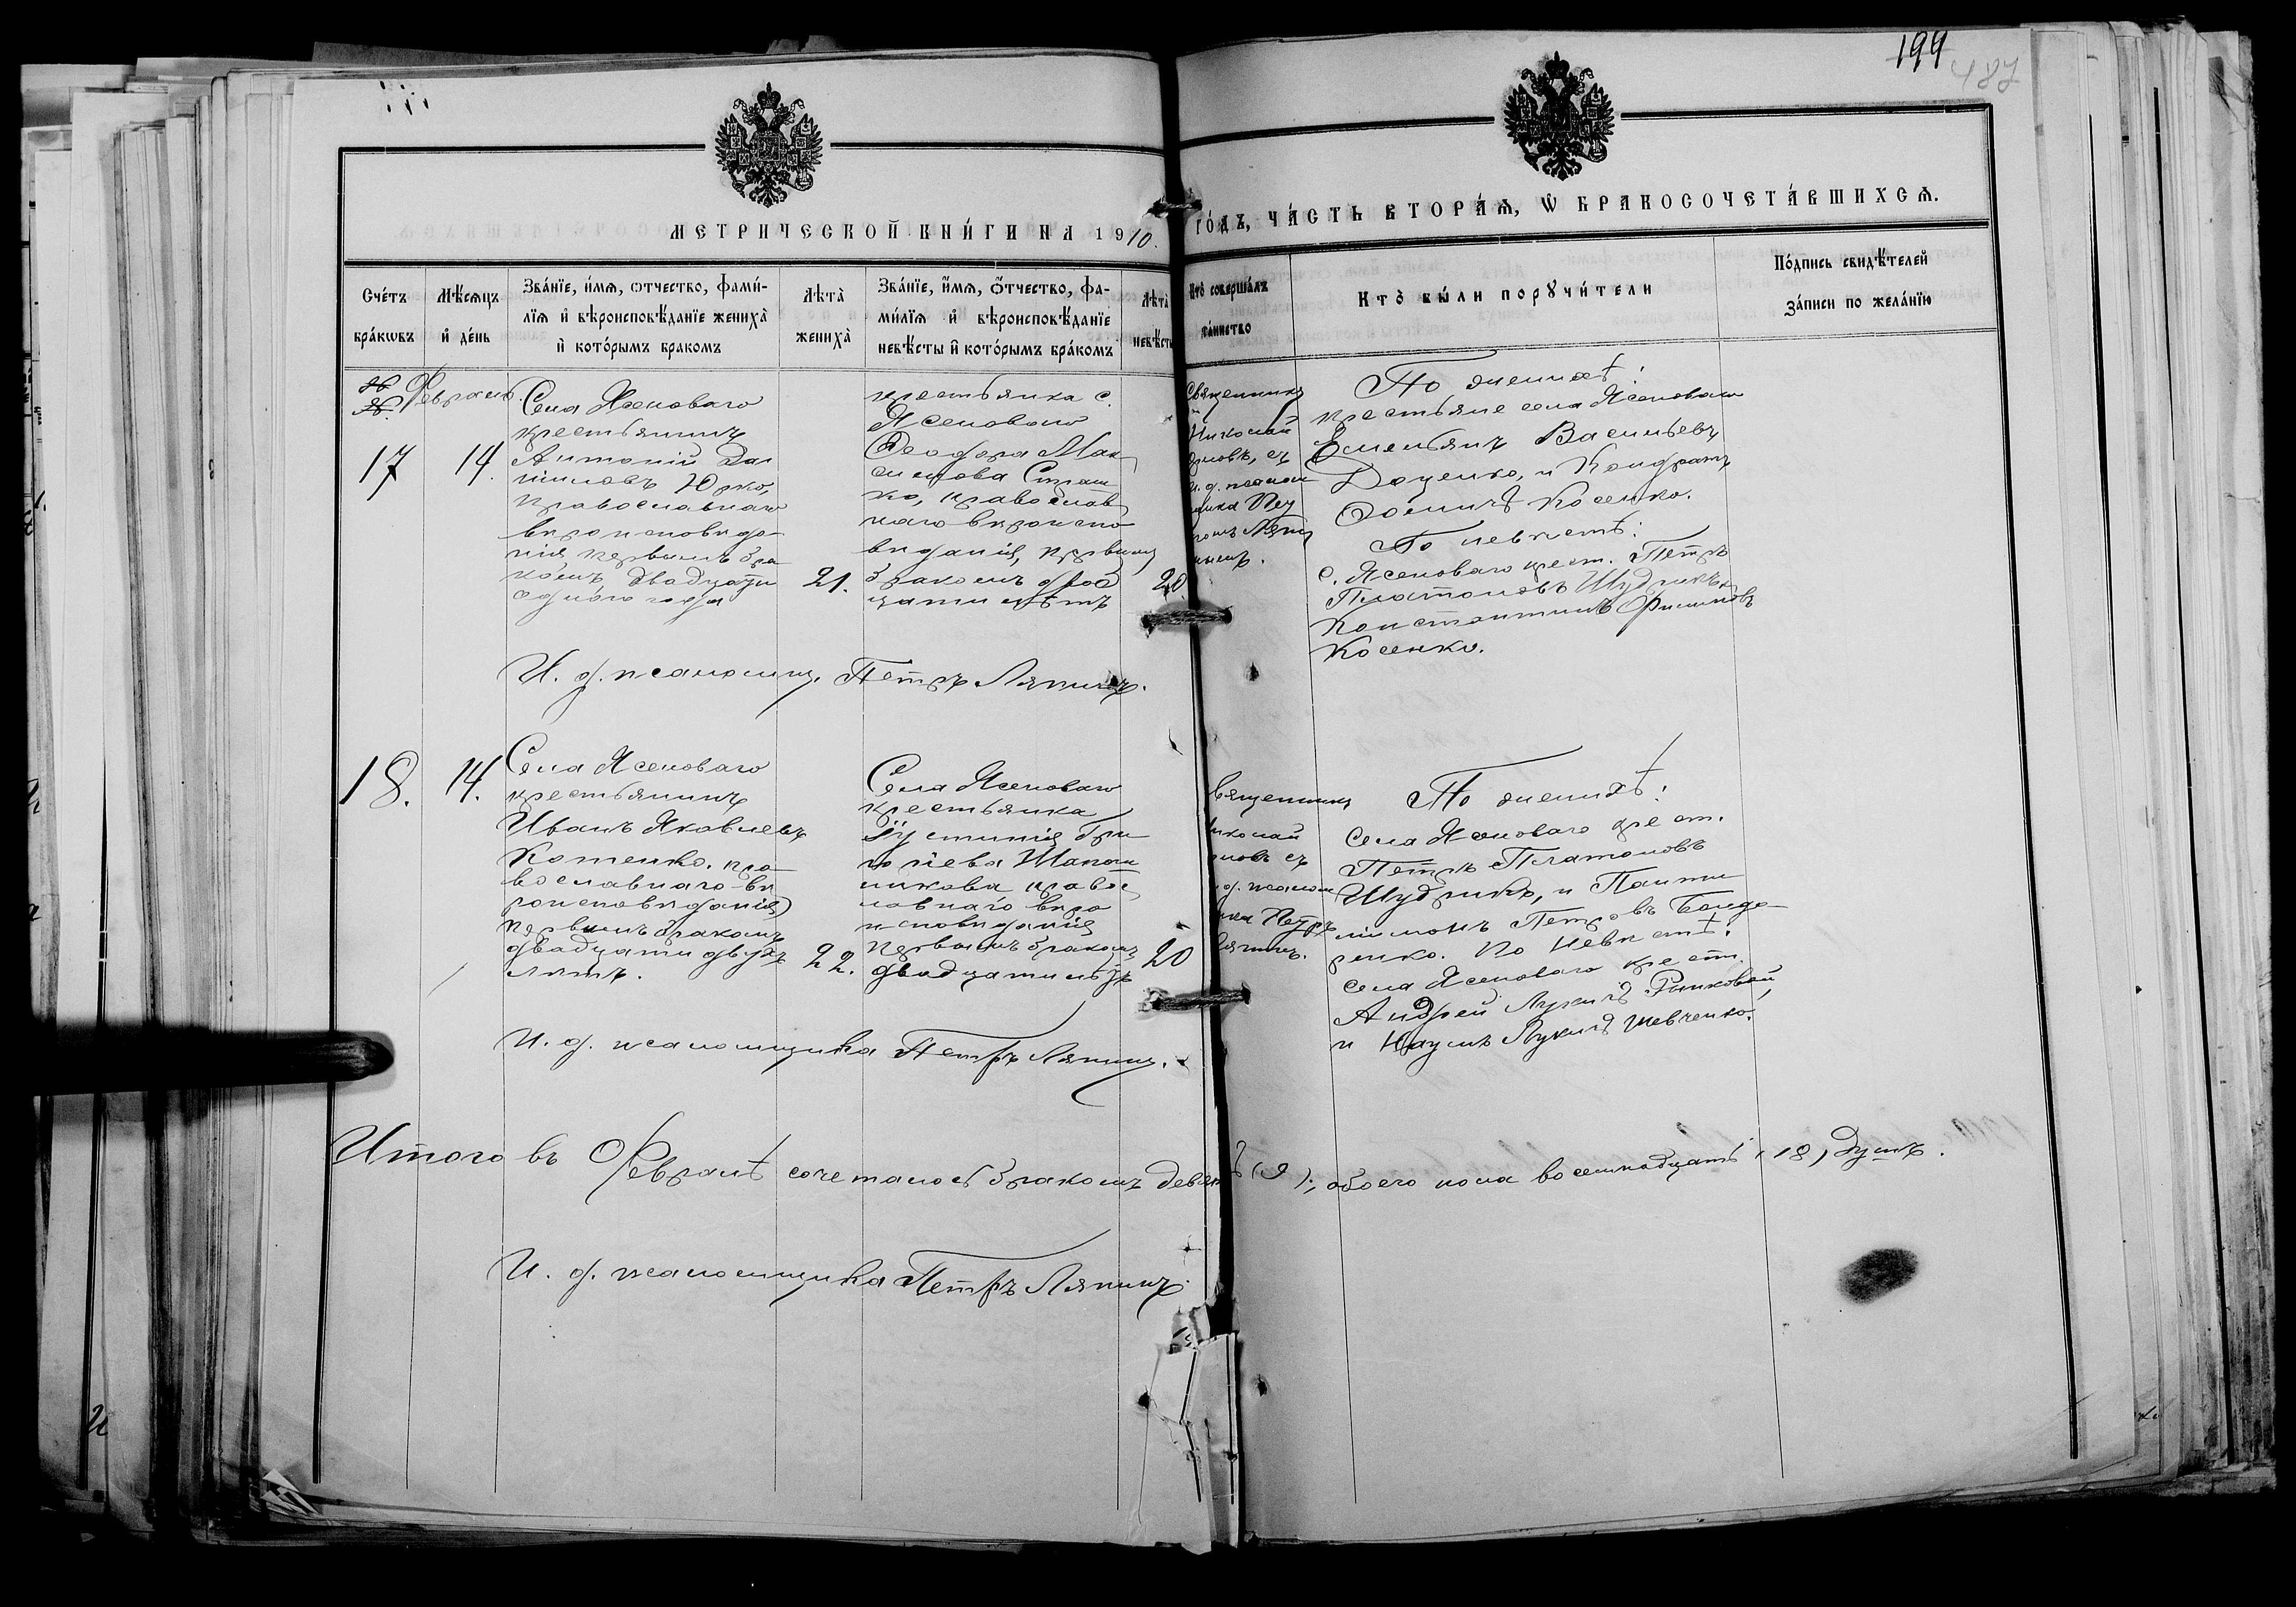 199
487
МЕТРИЧЕСКОЙ КНИ́ГИ НА 1910.
ГО́ДЪ, ЧА́СТЬ ВТОРА́Ѧ, Ѡ БРАКОСОЧЕТА́ВШИХСѦ.
Сче́тъ
бра́кѡвъ
Мѣ́сѧцъ
и де́нь
Зва́нїе, и́мѧ, ѻтчество, фами́-
лїѧ и вѣроисповѣ́данїе жениха̀
и кото́рымъ бракомъ
Лѣта̀
жениха̀
Зва́нїе, и́мѧ, ѻтчество, фа-
ми́лїѧ и вѣроисповѣ́данїе
невѣ́сты и кото́рымъ бра́комъ
Лѣта̀
невѣсты
Кто̀ соверша́лъ
та́инство
Кто̀ бы́ли порꙋчи́тели
По́дпись свидѣ́телей
за́писи по жела́нїю
Февраль.
17
14.
Села Ясеноваго
крестьянинъ
Антоній Да-
ниловъ Юрко,
православнаго
вѣроисповѣда-
нія, первымъ бра-
комъ, двадцати
одного года
21.
крестьянка с.
Ясеноваго
Ѳеодора Мак-
симова Страш-
ко, православ-
наго вѣроиспо-
вѣданія, первымъ
бракомъ двад-
цати лѣтъ
20.
Священникъ
Николай
съ
и. д. псалом-
щика Пет-
ромъ Ляпи-
нымъ.
По женихѣ:
крестьяне села Ясеноваго
Емельянъ Васильевъ
Доценко, и Кондратъ
Ѳоминъ Косенко.
По невѣстѣ:
с. Ясеноваго крест. Петръ
Платоновъ Шудрикъ и
Константинъ Филиповъ
Косенко.
И. д. псаломщ. Петръ Ляпинъ.
18.
14.
Села Ясеноваго
крестьянинъ
Иванъ Яковлевъ
Котенко, пра-
вославнаго вѣ-
роисповѣданія
первымъ бракомъ
двадцати двухъ
лѣтъ.
22.
Села Ясеноваго
крестьянка
Іустинія Гри-
горіева Шапош-
никова правос-
лавнаго вѣро-
исповѣданія
первымъ бракомъ
двадцати лѣтъ
20
священникъ
Николай
съ
и. д. псалом-
щика Петръ
Ляпинъ.
По женихѣ:
Села Ясеноваго крест.
Петръ Платоновъ
Шудрикъ, и Панте-
лімонъ Петровъ Бонда-
ренко. По невѣстѣ:
села Ясеноваго крест.
Андрей Лукинъ Рынковой,
и Наумъ Лукинъ Шевченко.
И. д. псаломщика Петръ Ляпинъ.
Итого въ Февралѣ сочеталось бракомъ девять (9); обоего пола восемнадцать (18) душъ.
И. д. псаломщика Петръ Ляпинъ.